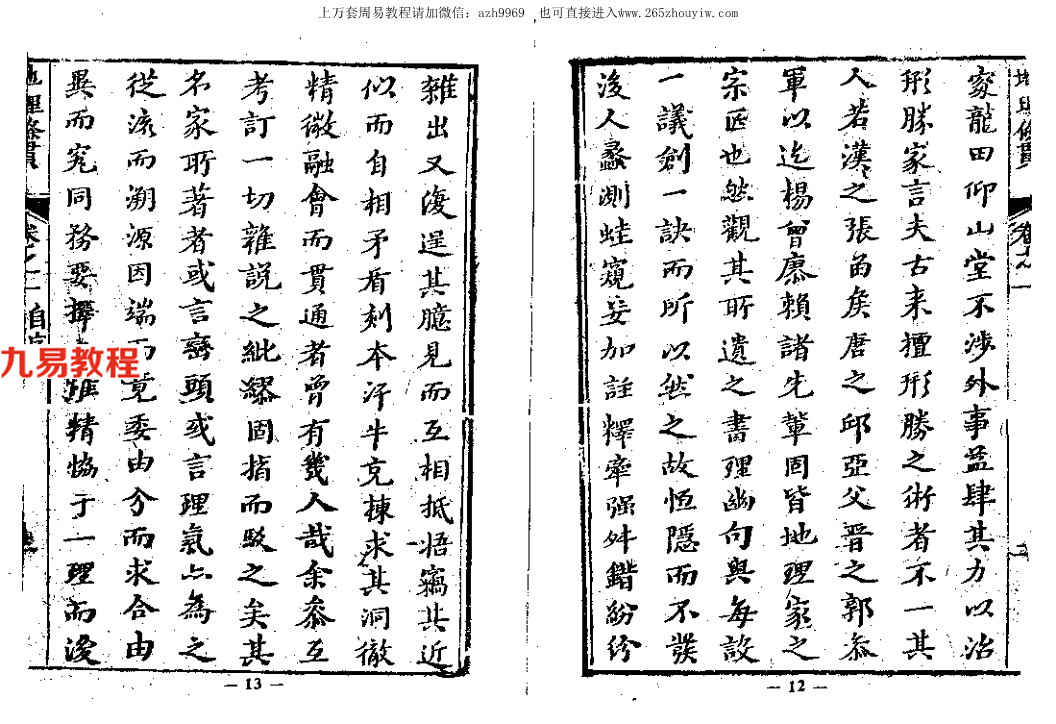 上万套周易教程请加微信：azh9969 ，也可直接进入www.265zhouyiw.com
卷
家龍田仰山堂不涉外事益肆其力以治
形勝家言夫古來擅形勝之術者不一其
人若漢之張角矦唐之邱亞父晋之郭叅
軍以迄楊曾廖賴諸先輩固皆地理家之
宗匠也然觀其所遺之書理幽句與每設
一議創一訣而所以然之故恒隱而不發
後人蠡測蛙窺妄加註釋牽强舛錯紛紛
— 12 —
雜出又復逞其臆見而互相抵悟竊其近
似而自相矛盾刻本汗牛充棟求其洞徹
精微融會而貫通者曾有幾人哉余叅互
考訂一切雜説之紕繆固指而駁之矣其
名家所著者或言巒頭或言理氣亦為之
從流而溯源因端而竟委由分而求合由
異而究同務要擇精恊于一理而後
地理條貫
卷之一
自序
九易教程
— 13 —